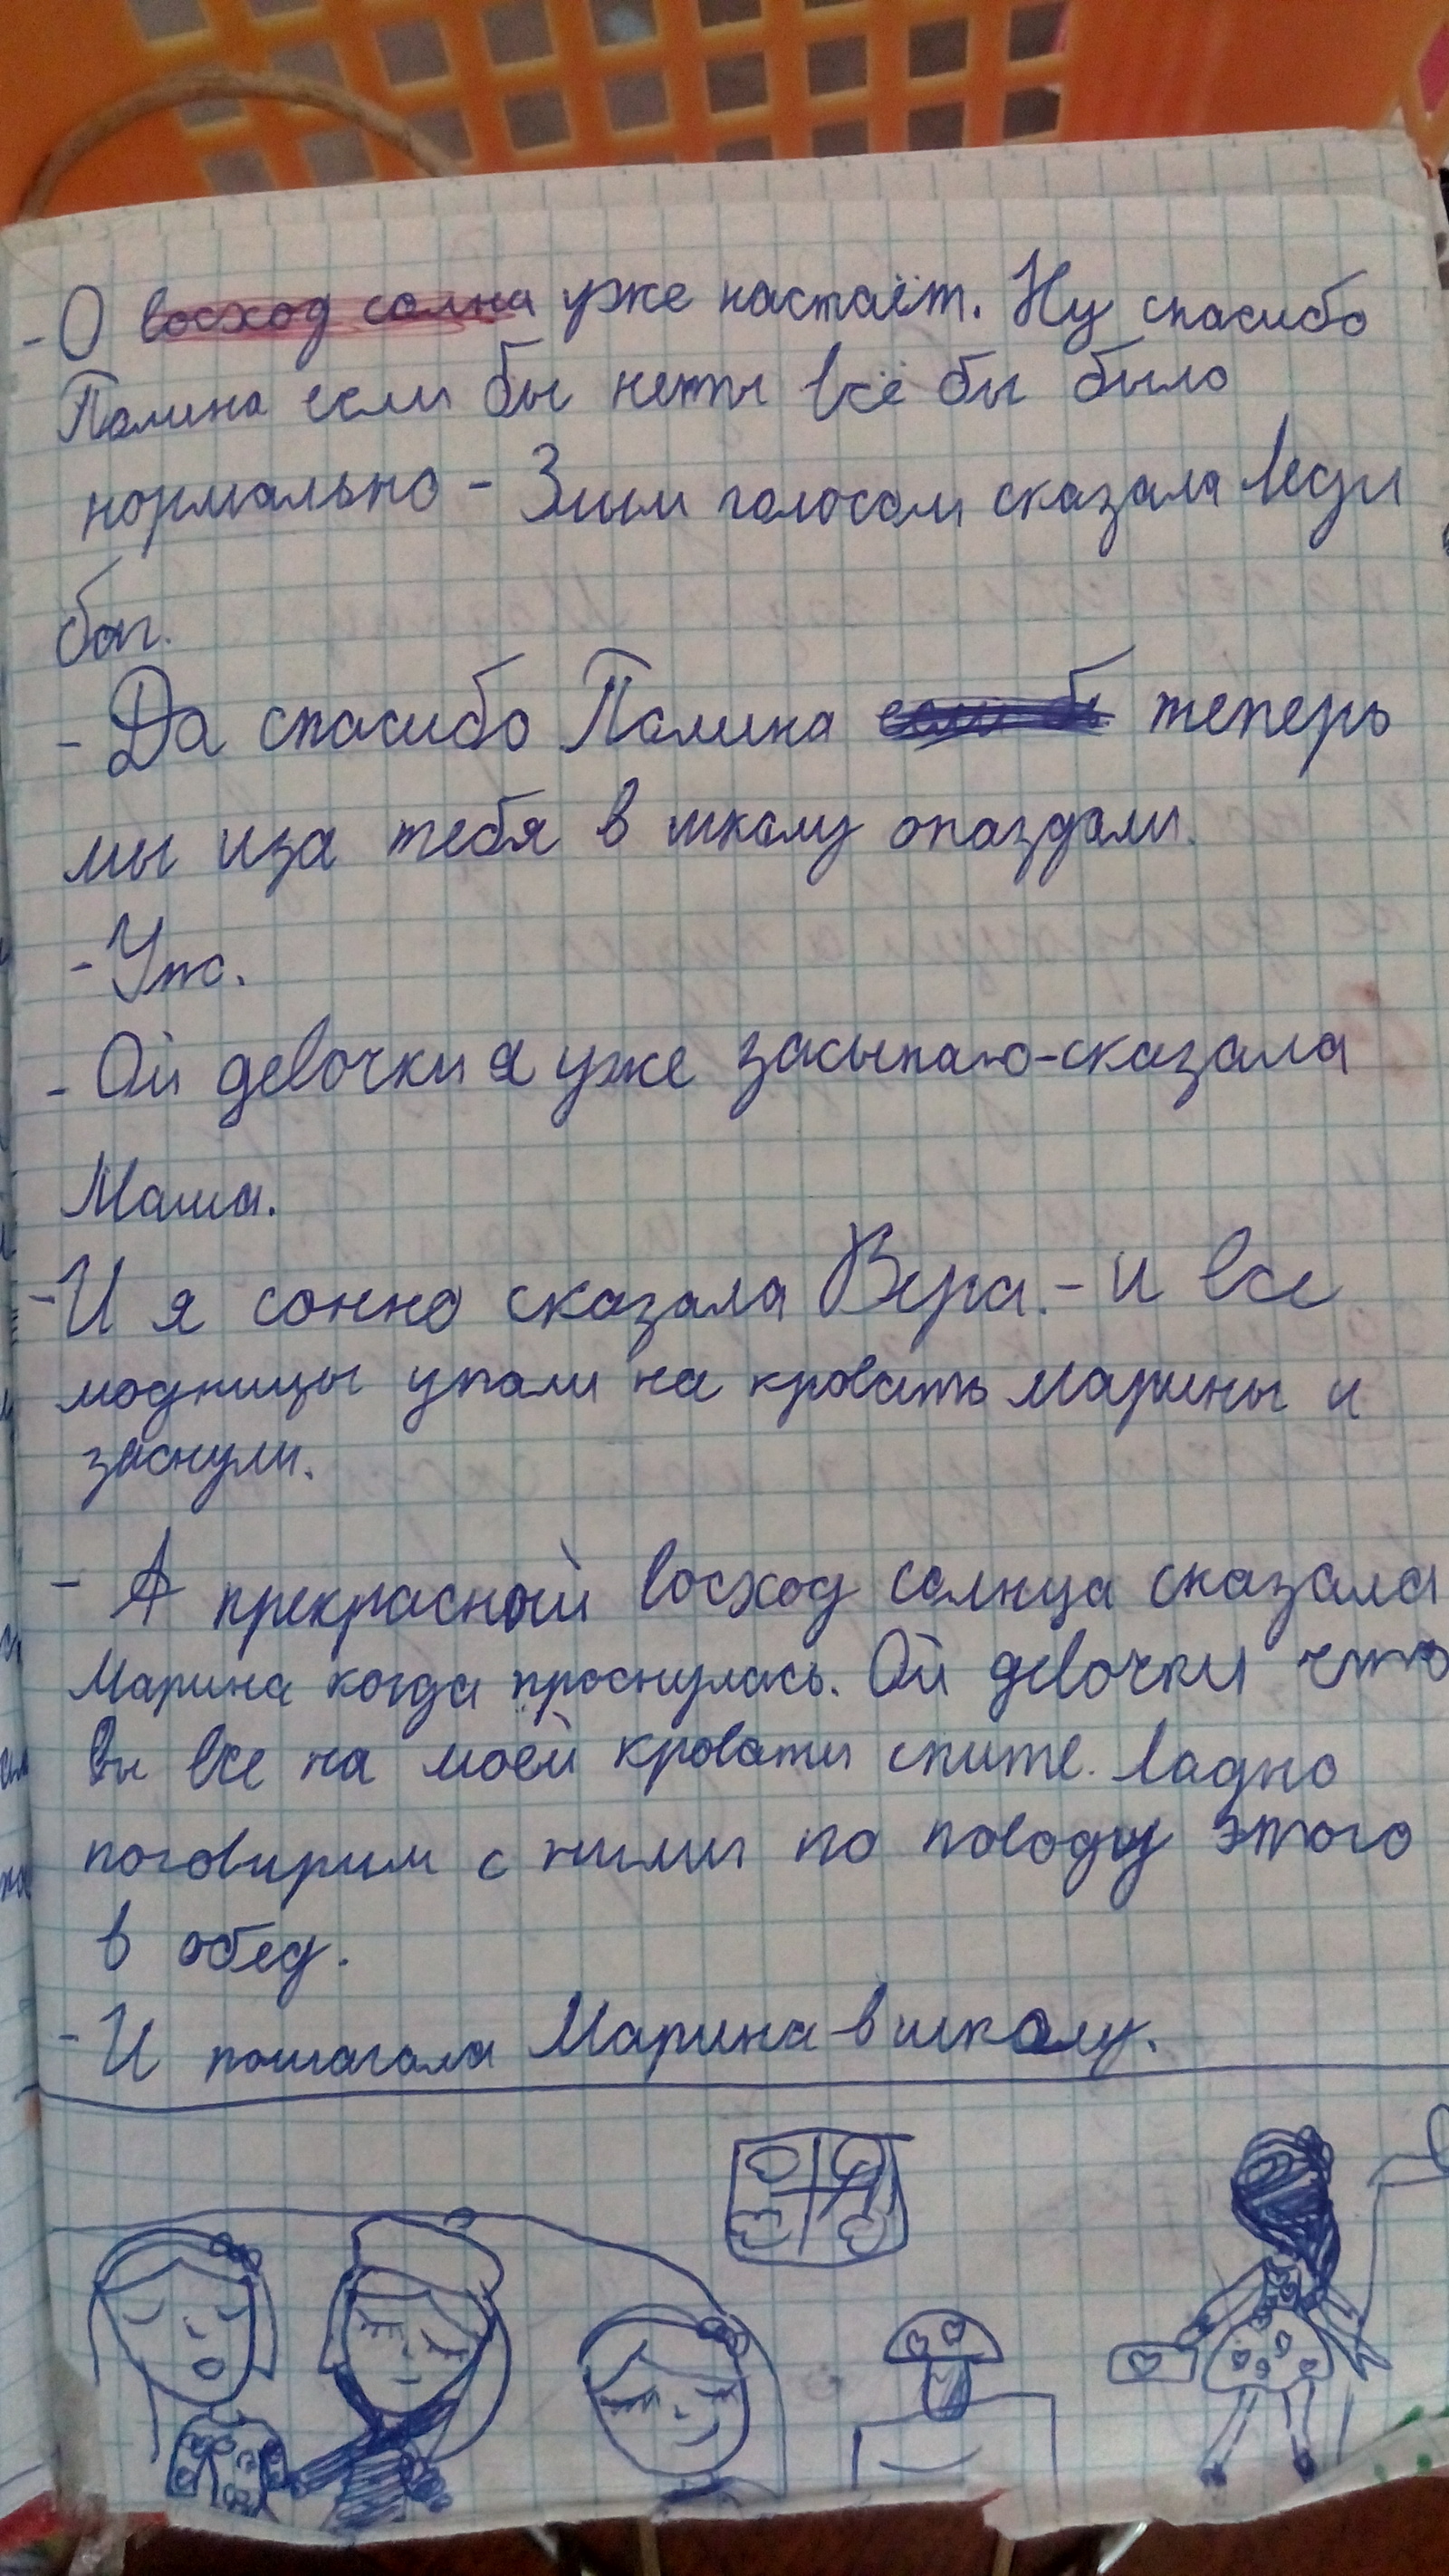 - О восход солнца уже настаёт. Ну спасибо
Полина если бы неты всё бы было
нормально - Злым голосом сказала Леди
баг.
- Да спасибо Полина теперь
мы иза тебя в школу опаздали.
- Ой девочки я уже засыпаю-сказала
Маша.
- И я сонно сказала Вера. - и все
модницы упали на кровать марины и
заснули.
- А прекрасный восход солнца сказала
Марина когда проснулась. Ой девочки что
вы все на моей кровати спите. Ладно
поговирим с ними по поводу этого
в обед.
- И пошагала Марина-в школу.